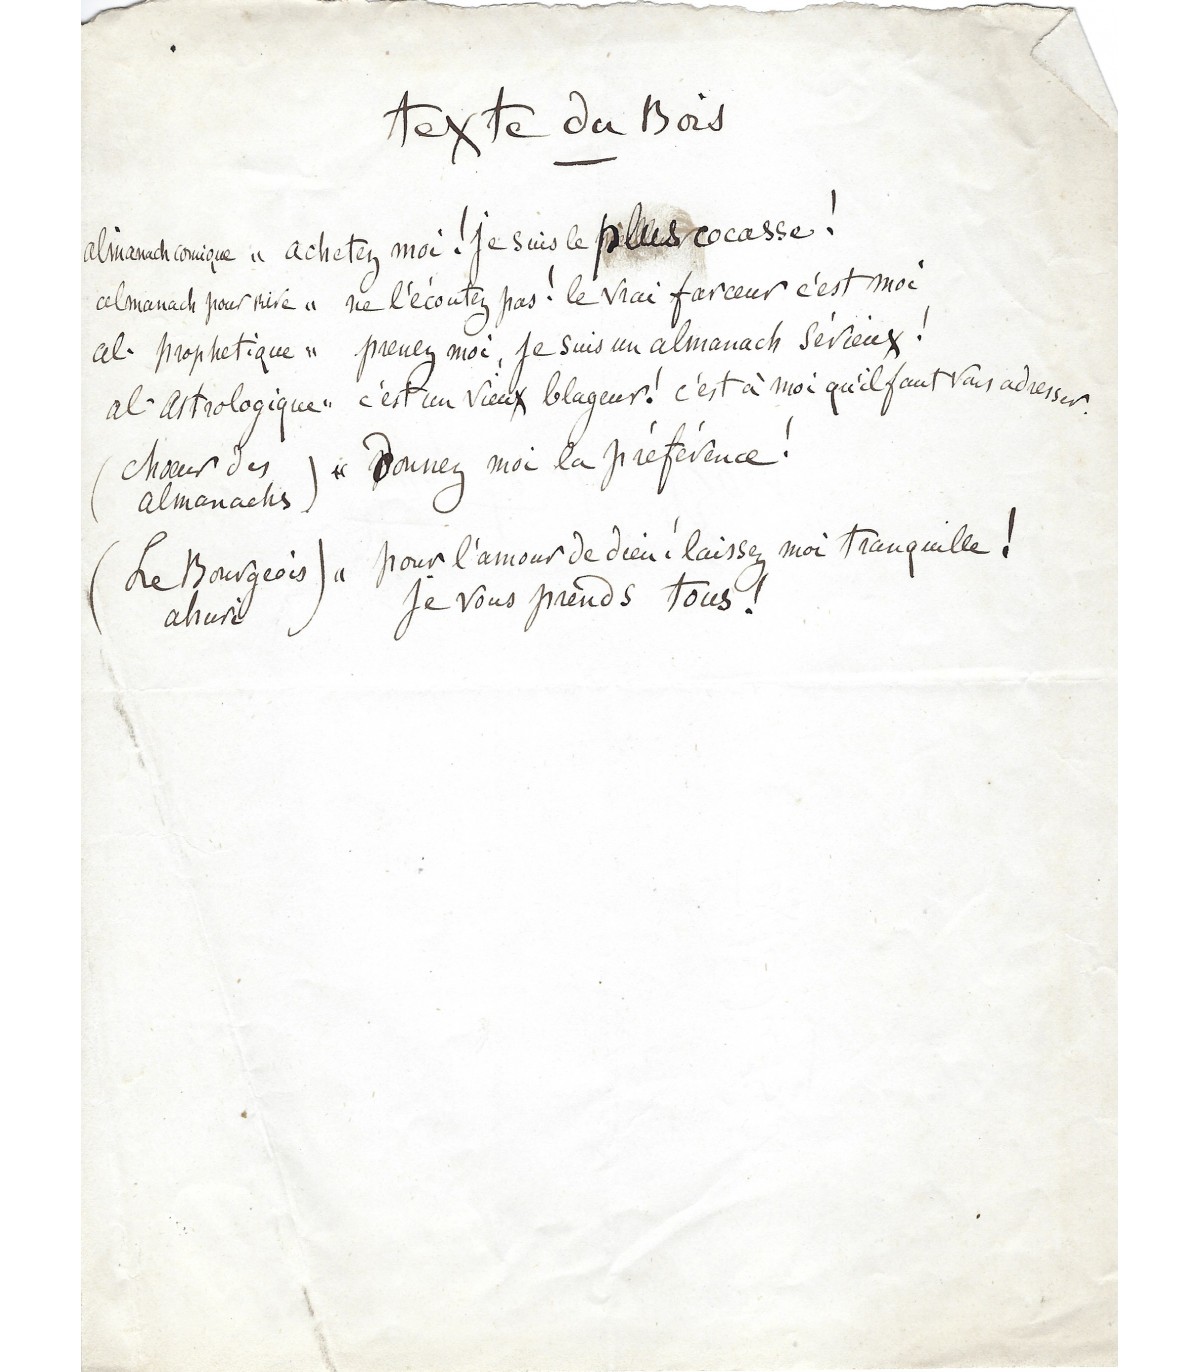 texte du Bois
almanach comique " achetez moi ! je suis le plus cocasse !
almanach pour rire " ne l'écoutez pas ! le vrai farceur c'est moi
al. prophetique " prenez moi, je suis un almanach sérieux !
al. astrologique " c'est un vieux blageur ! c'est à moi qu'il faut vous adresser.
(choeur des almanachs) " Donnez moi la préférence !
(Le Bourgeois ahuri) " pour l'amour de dieu ! laissez moi tranquille !
je vous prends tous !